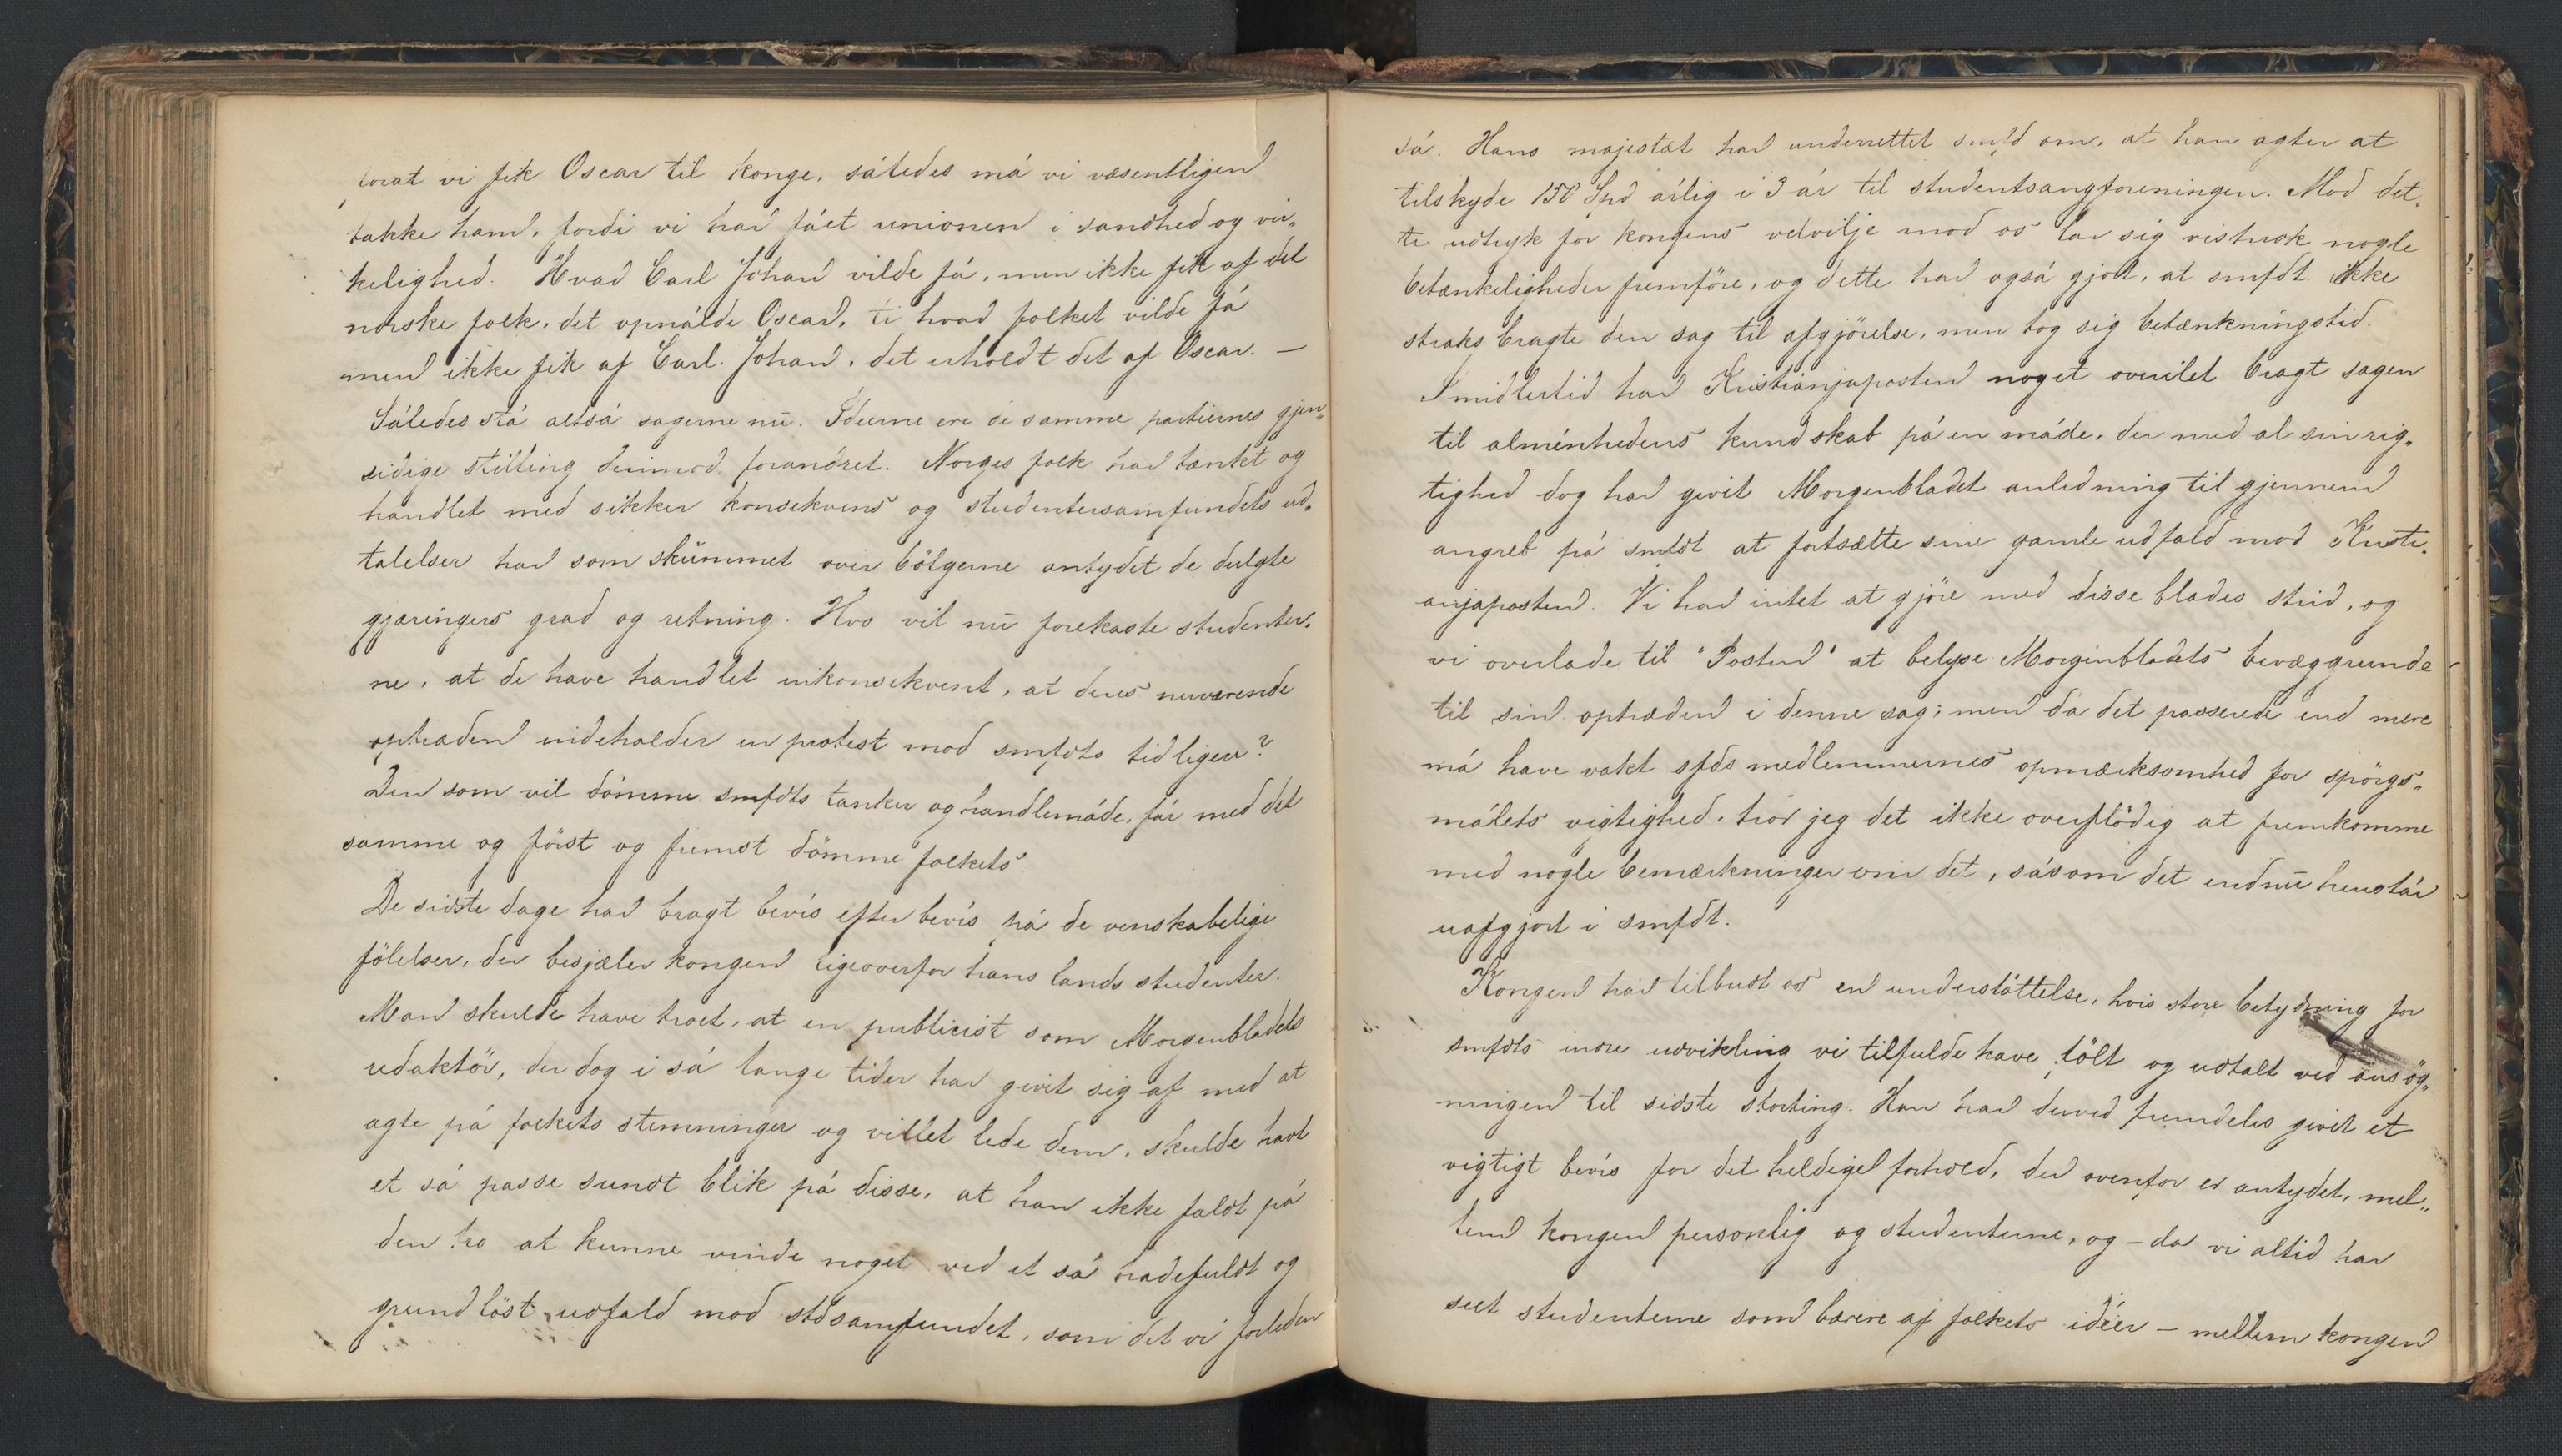 forat vi fik Oscar til konge, således må vi væsentligen
takke ham, fordi vi har fået unionen i sandhed og vir-
kelighed. Hvad Carl Johan vilde få, men ikke fik af det
norske folk, det opnålde Oscar, ti hvad folket vilde få
men ikke fik af Carl Johan, det erholdt det af Oscar. —
Således stå altså sagerne nu. Ideerne ere de samme partiernes gjen-
sidige stilling derimod forandret. Norges folk har tænkt og
handlet med sikker konsekvens og studentersamfundets ud-
talelser har som skummet over bölgerne antydet de dulgte
gjæringers grad og retning. Hvo vil nu forekaste studenter-
ne, at de have handlet inkonsekvent, at deres nuværende
optræden indeholder en protest mod smfdts tidligere?
Den som vil dömme smfdts tanker og handlemåde, får med det
samme og först og fremst dömme folkets.
De sidste dage har bragt bevis efter bevis på de venskabelige
fölelser, der besjæler kongen ligeoverfor hans lands studenter.
Man skulde have troet, at en publicist som Morgenbladets
redaktör, der dog i så lange tider har givet sig af med at
agte på folkets stemninger og villet lede dem, skulde havt
et så passe sundt blik på disse, at han ikke faldt på
den tro at kunne vinde noget ved et så hadefuldt og
grundlöst udfald mod stdsamfundet, som det vi forleden
så. Hans majestæt har underrettet smfd om, at han agter at
tilskyde 150 Spd årlig i 3 år til studentsangforeningen. Mod det-
te udtryk for kongens velvilje mod os lar sig vistnok nogle
betænkeligheder fremföre, og dette har også gjort, at smfdt ikke
straks bragte den sag til afgjörelse, men tog sig betænkningstid.
Imidlertid har Kristianjaposten noget overilet bragt sagen
til alménhedens kundskab på en måde, der med al sin rig-
tighed dog har givet Morgenbladet anledning til gjennem
angreb på smfdt at fortsætte sine gamle udfald mod Kristi-
anjaposten. Vi har intet at gjöre med disse blades strid, og
vi overlade til "Posten" at belyse Morgenbladets bevæggrunde
til sin optræden i denne sag; men da det passerede end mere
må have vakt sfds medlemmernes opmærksomhed for spörgs-
målets vigtighed, tror jeg det ikke overflödig at fremkomme
med nogle bemærkninger om det, såsom det endnu henstår
uafgjort i smfdt.
Kongen har tilbudt os en understöttelse, hvis store betydning for
smfdts indre udvikling vi tilfulde have fölt og udtalt ved ansög-
ningen til sidste storting. Han har derved fremdeles givet et
vigtigt bevis for det heldige forhold, der ovenfor er antydet, mel-
lem kongen personlig og studenterne, og – da vi altid har
seet studenterne som bærere af folkets idéer – mellem kongen